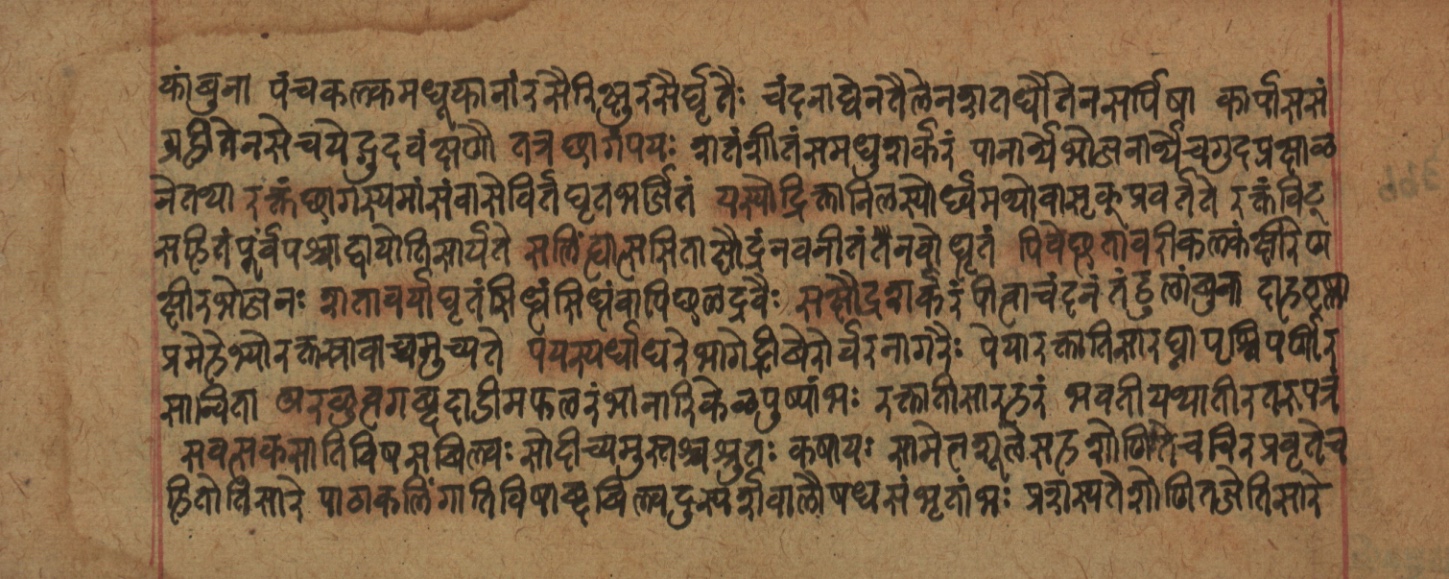 कांबुना पंचकल्कमधूकानां रसैरिक्षुरसैर्घृतैः चंदनाद्येनतैलेनशतधौतेनसर्पिषा कार्पाससं
ग्रहीतेनसेचयेद्गुदवंक्षणौ तत्र छागंपयः शतंशीतंसमधुशर्करं पानार्थेभोजनार्थेचगुदप्रक्षाळ
नेतथा रक्तंछागस्यमांसंवासेवितंघृतभर्जितं यस्योद्रिक्तानिलस्योर्ध्वमथोवासृक्प्रवर्तते रक्तंविट्
सहितंपूर्वंपश्चाद्वायोतिसार्यते सलिंह्यात्ससिताक्षौद्रंनवनीतंतैनवोधृतं पिवेछतांवरीकल्कंक्षीरिण
क्षीरभोजनः शतावर्याघृतंसिध्धंसिध्धंवापिछळद्रवैः सक्षौद्रशर्करं पीत्वाचंदनं तंडुलांबुना दाहतृष्णा
प्रमेहेभ्योरक्तस्रावाच्चमुच्यते पयस्यर्धोधरेभागेह्रीबेरोर्चरनागरैः पेयारक्तातिसारघ्नापृश्निपर्णीर
सान्विता अरळुत्वगब्दृदाडीमफलरंभानारिकेळपुष्पांभः रक्तातीसारहरं भवतीयथातीरतरूपत्रं
सवत्सकसातिविषसबिल्वः सोदीच्यमुस्तश्चश्रुतः कषायः सामेतशूलेसहशोणितेचचिरप्रवृत्तेच
हितोतिसारे पाठाकलिंगातिविषाब्दबिल्वदुस्पर्शवालौषधसंभृतांभः प्रशस्यतेशोणितजेतिसारे